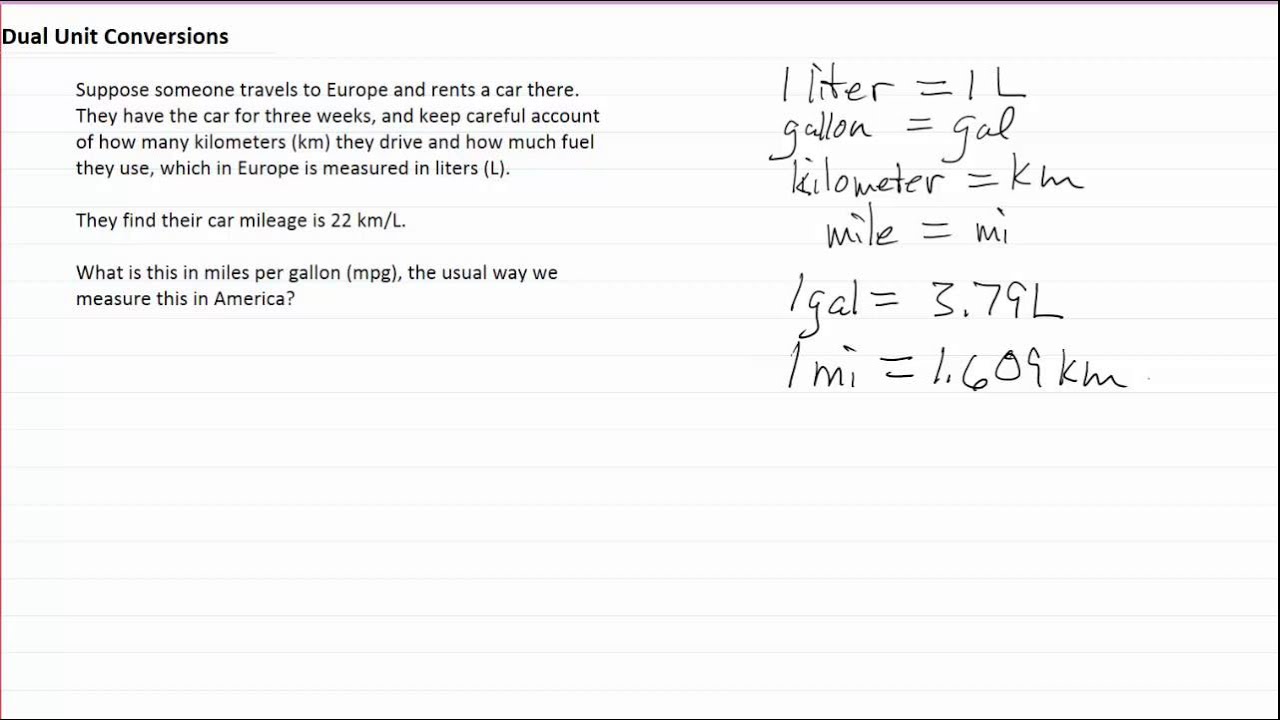 Dual Unit Conversions
Suppose someone travels to Europe and rents a car there.
They have the car for three weeks, and keep careful account
of how many kilometers (km) they drive and how much fuel
they use, which in Europe is measured in liters (L).
They find their car mileage is 22 km/L.
What is this in miles per gallon (mpg), the usual way we
measure this in America?
1 liter = 1 L
gallon = gal
kilometer = km
mile = mi
1 gal = 3.79 L
1 mi = 1.609 km